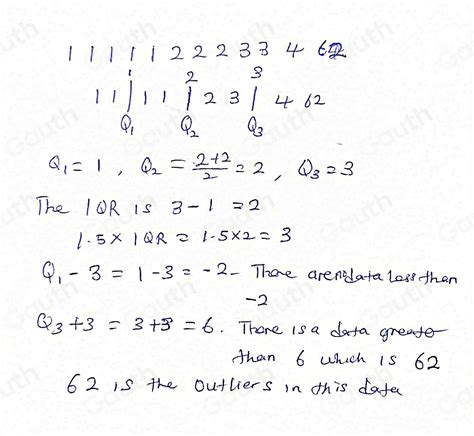 1 1 1 1 1 2 2 2 3 3 4 62
2 3
1 1 | 1 1 | 2 3 | 4 62
Q₁ Q₂ Q₃
Q₁ = 1 , Q₂ = 2+2/2 = 2 , Q₃ = 3
The IQR is 3 - 1 = 2
1.5 × IQR = 1.5×2 = 3
Q₁ - 3 = 1 - 3 = -2 - There are no data less than
-2
Q₃ + 3 = 3 + 3 = 6 . There is a data greater
than 6 which is 62
62 is the outliers in this data